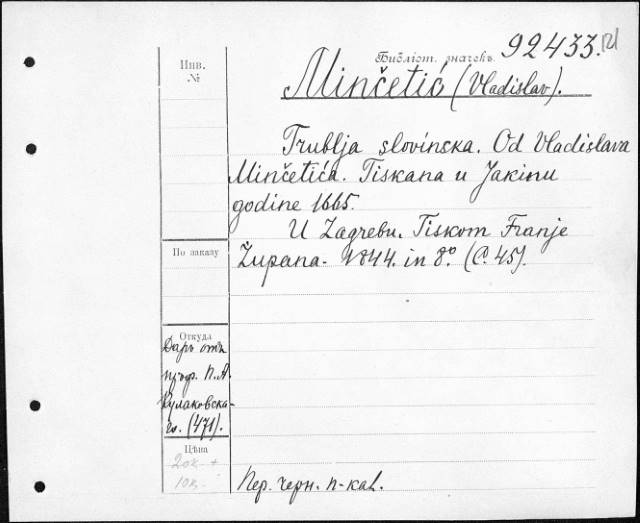 Библіот. значекъ 92433.
Инв.
№
Minčetić (Vladislav).
Trublja slovinska. Od Vladislava
Minčetića. Tiskana u Jakinu
godine 1665.
U Zagrebu. Tiskom Franje
Župana. 1844. in 8º. (С. 45).
По заказу
Откуда
Даръ отъ
проф. П. А.
Кулаковска-
го. (471).
Цѣна
20к. +
10к.
Пер. черн. п-кал.